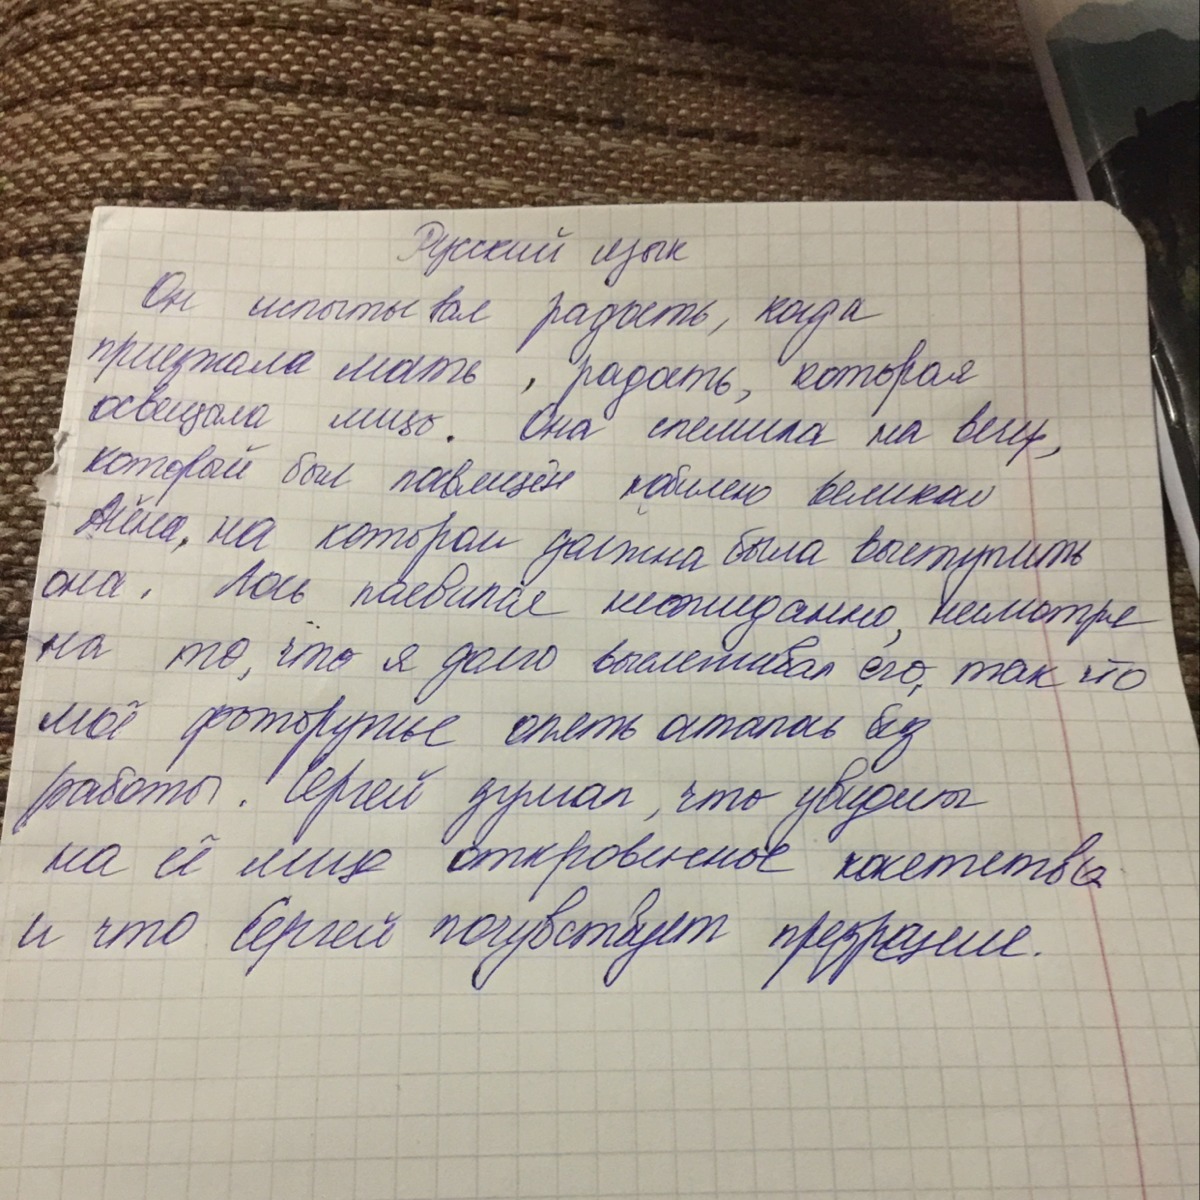 Русский язык
Он испытывал радость, когда
приезжала мать, радость, которая
освещала лицо. Она спешила на вечер,
который был посвящён юбилею великого
на котором должна была выступить
она. Лось появился неожиданно, несмотря
на то, что я долго выслеживал его, так что
моё фоторужьё опять осталось без
работы. Сергей думал, что увидит
на её лице откровенное кокетство
и что Сергей почувствует презрение.